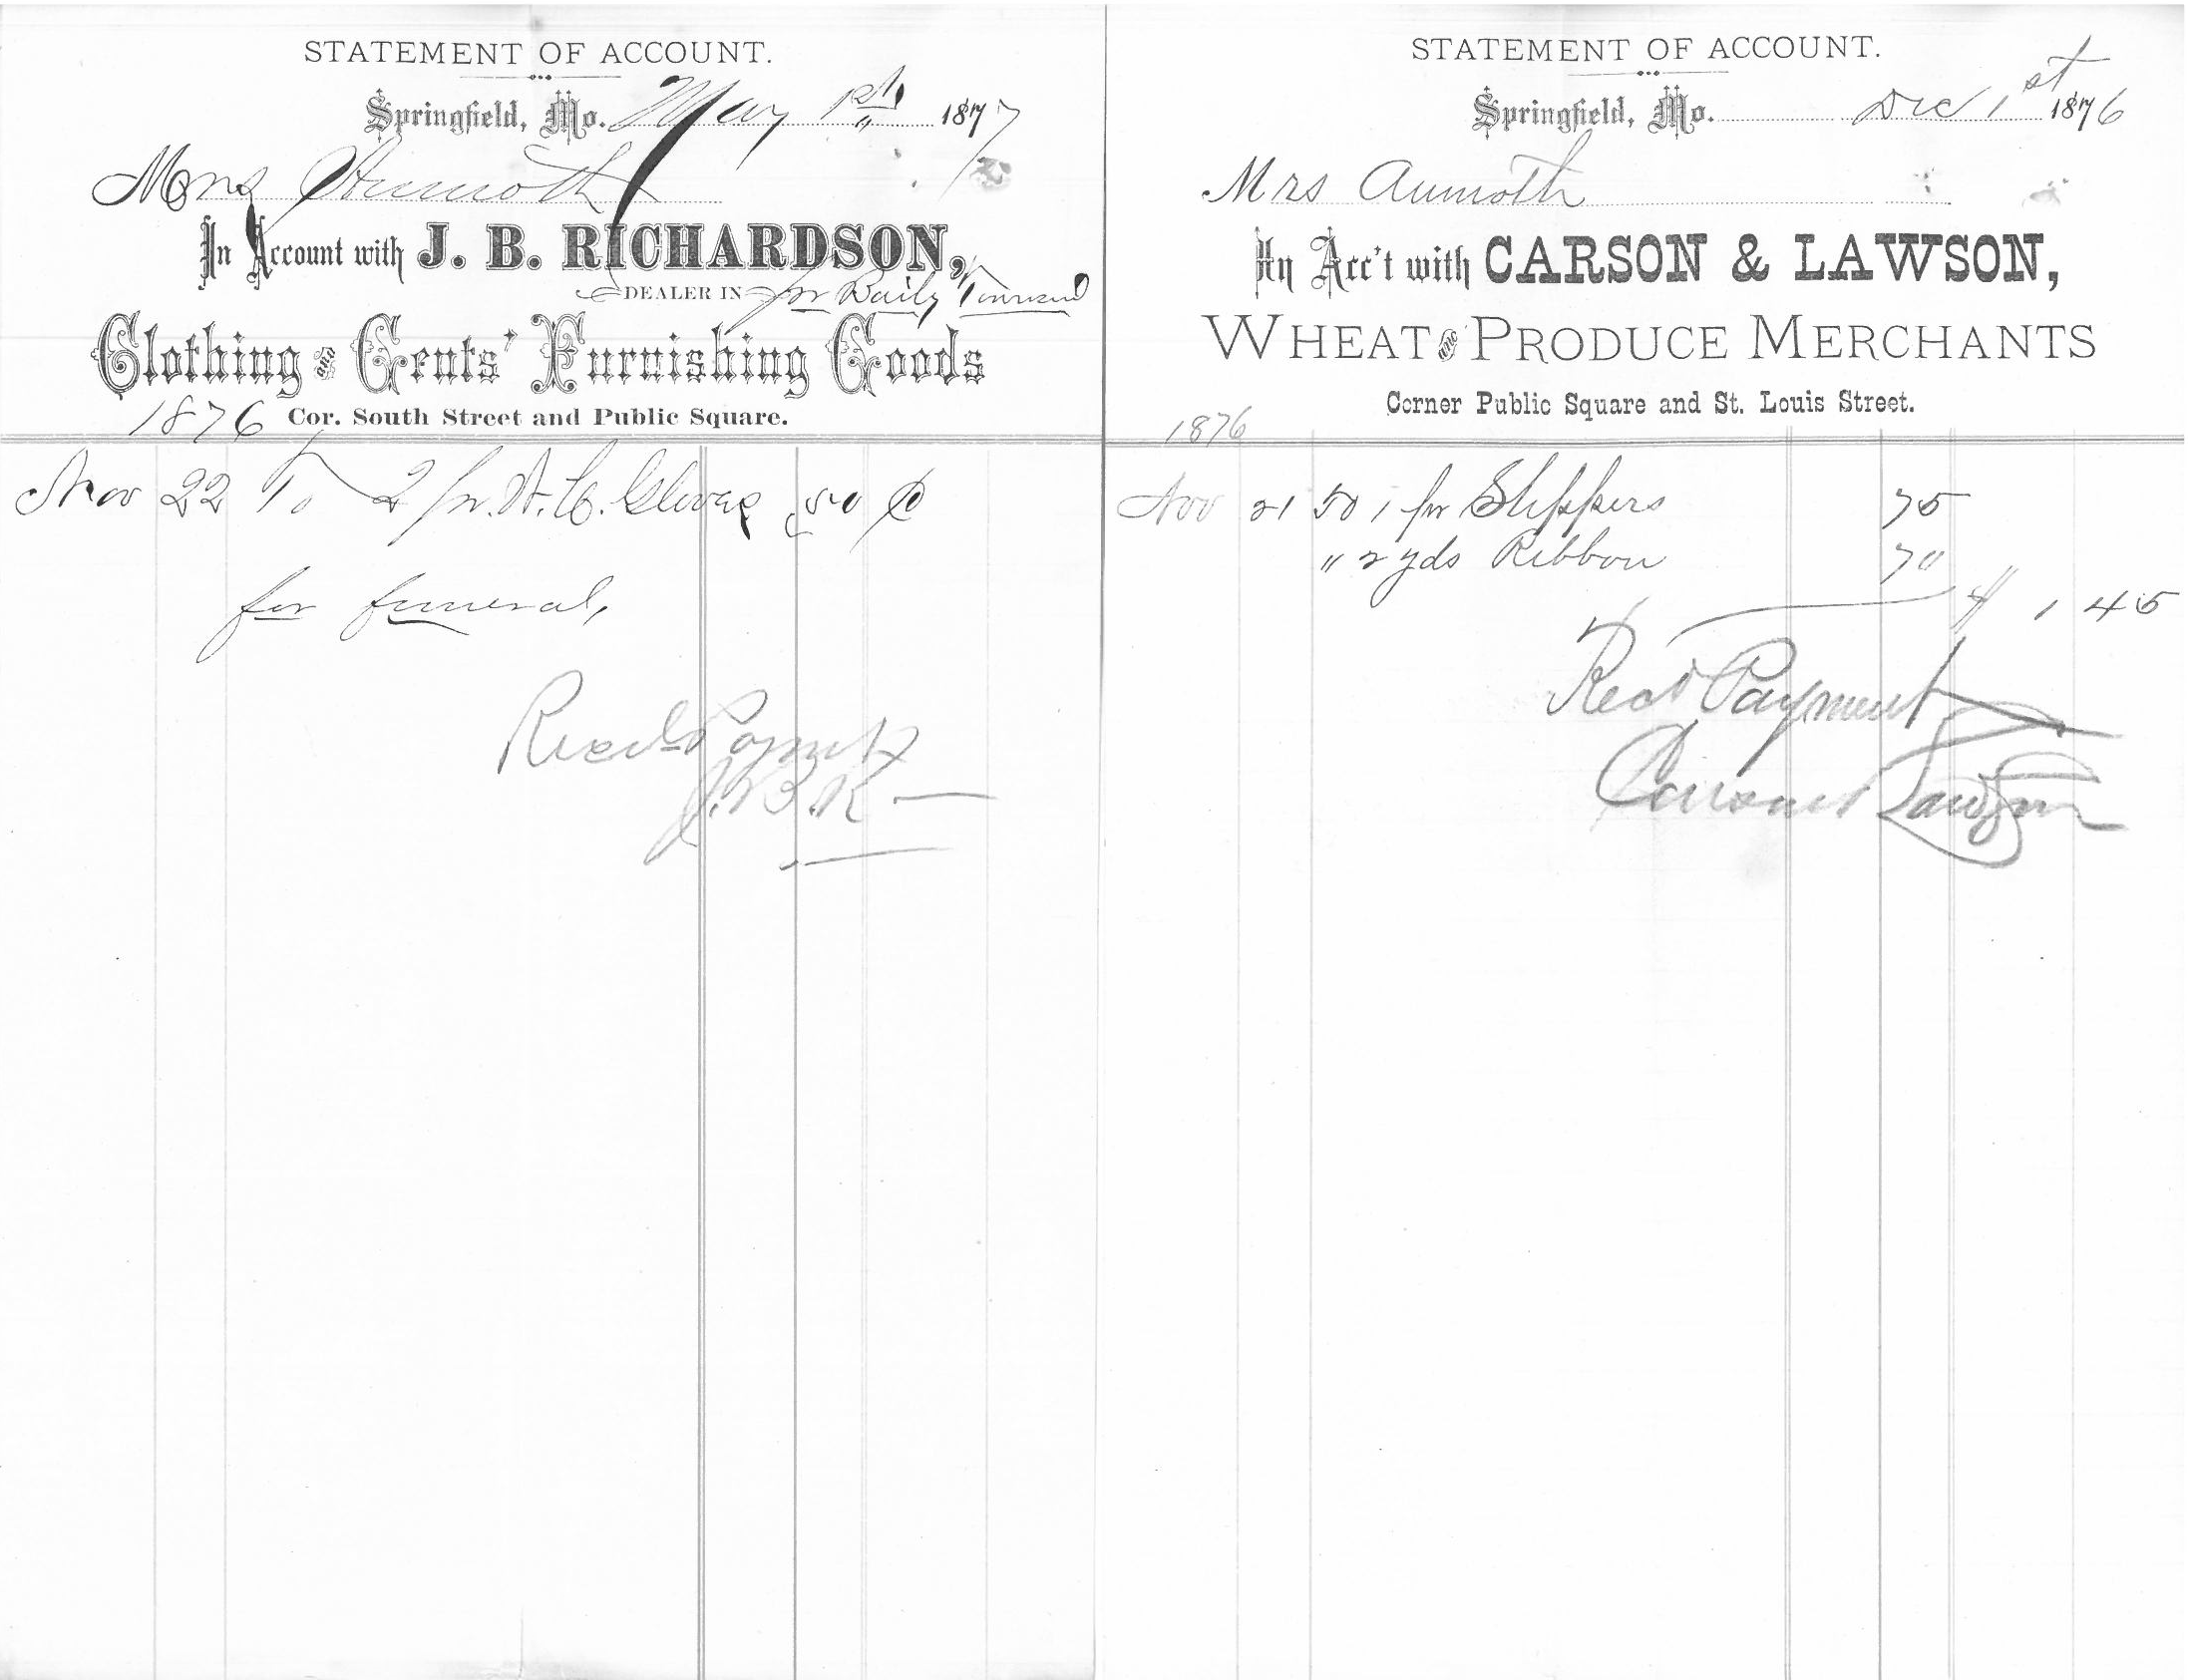 STATEMENT OF ACCOUNT.
Springfield, Mo. May 1st 1877
Mrs Aumoth
In Account with J. B. RICHARDSON,
DEALER IN pr Baily
Clothing and Gents' Furnishing Goods
1876 Cor. South Street and Public Square.
Nov 22 To 2 pr. Gloves 50 ¢
for funeral,
Recd Paymt
J.B.R
STATEMENT OF ACCOUNT.
Springfield, Mo. Dec 1st 1876
Mrs Aumoth
In Acc't with CARSON & LAWSON,
WHEAT and PRODUCE MERCHANTS
Corner Public Square and St. Louis Street.
1876
Nov 21 1 pr Slippers 75
" 2 yds Ribbon 70
$ 1 45
Recd Payment
Carson & Lawson